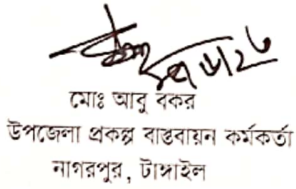 মোঃ আবু বকর
উপজেলা প্রকল্প বাস্তবায়ন কর্মকর্তা
নাগরপুর, টাঙ্গাইল